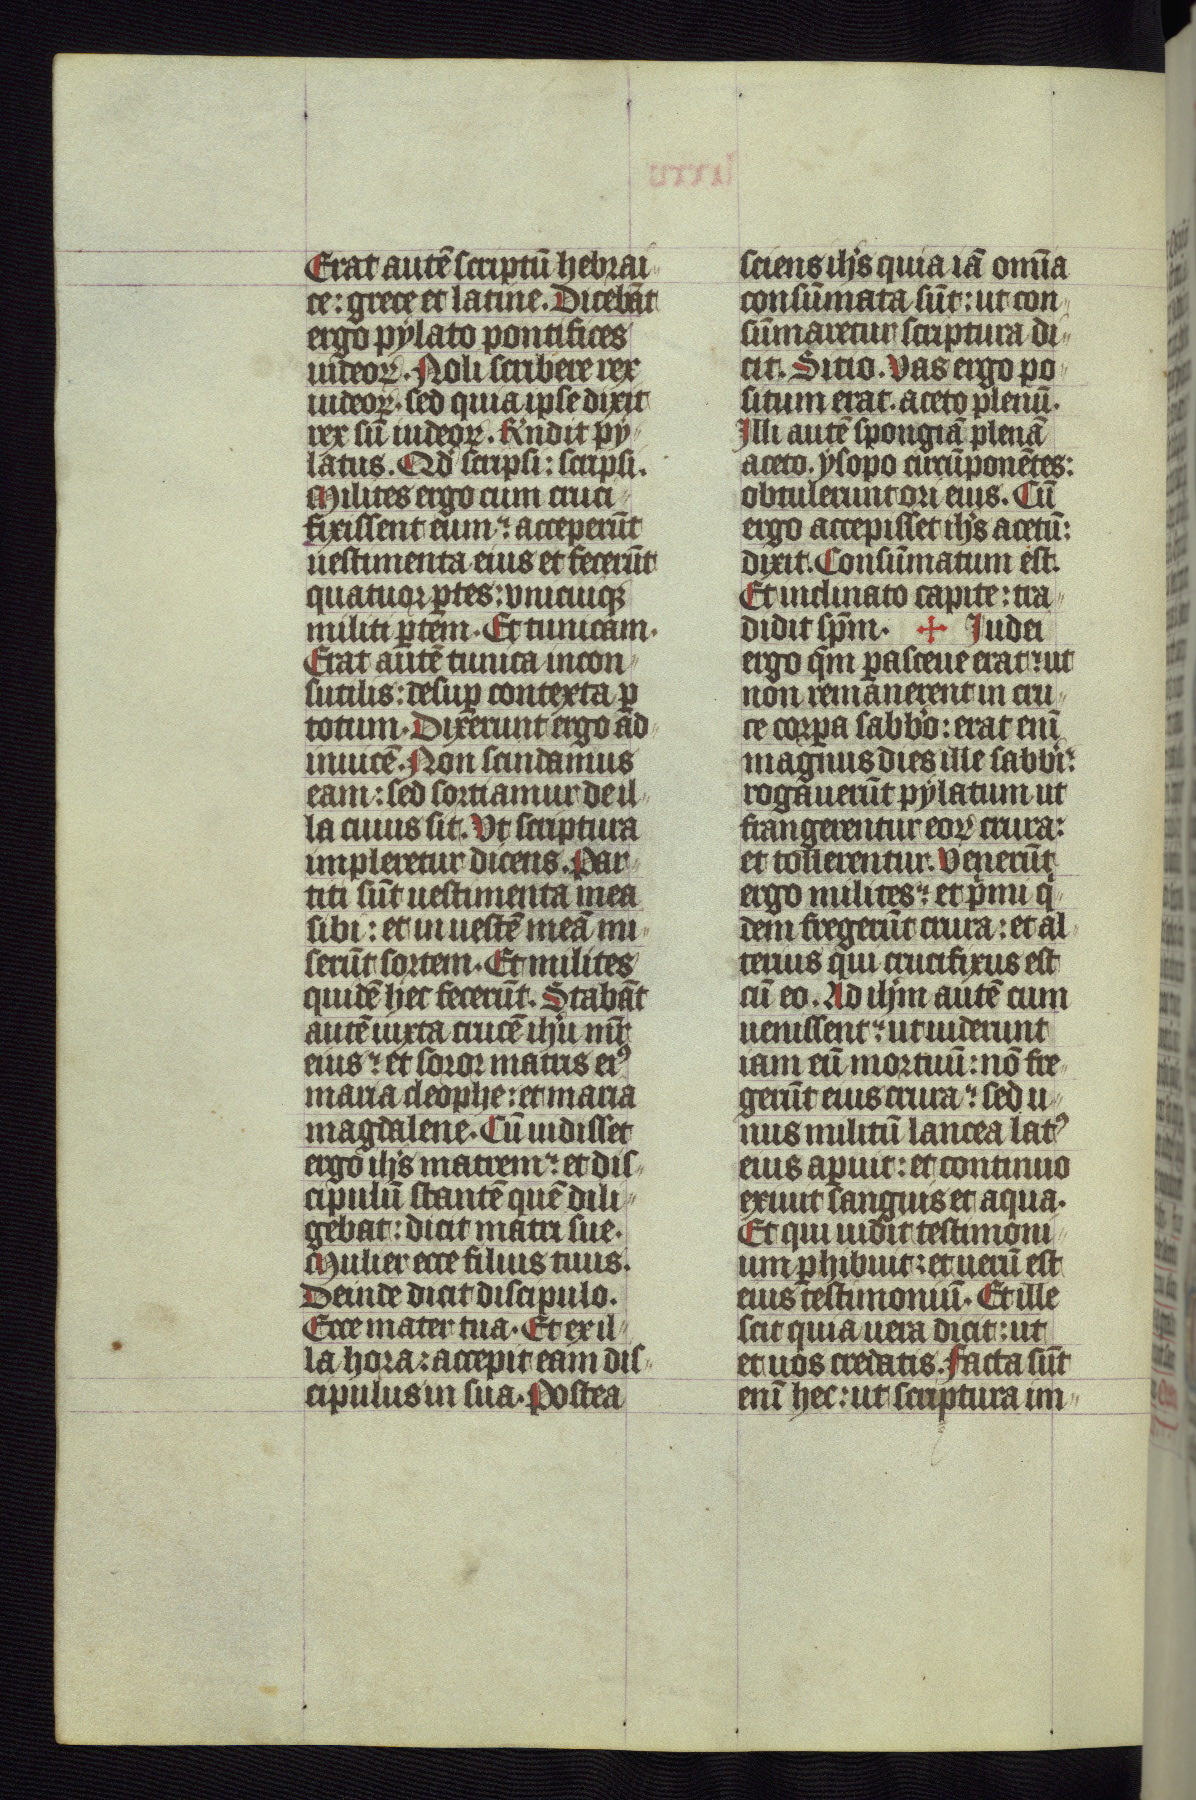 Erat autē scriptū hebrai-
ce: grece et latine. Dicebāt
ergo pylato pontifices
iudeoꝝ. Noli scribere rex
iudeoꝝ. sed quia ipse dixit
rex sū iudeoꝝ. Rn̄dit py-
latus. Qd̓ scripsi: scripsi.
Milites ergo cum cruci-
fixissent eum: acceperūt
uestimenta eius et fecerūt
quatuor ꝑtes: vnicuiqꝫ
militi ꝑtem. Et tunicam.
Erat autē tunica incon-
sutilis: desuꝑ contexta ꝑ
totum. Dixerunt ergo ad
inuicē. Non scindamus
eam: sed sortiamur de il-
la cuius sit. Vt scriptura
impleretur dicens. Par-
titi sūt uestimenta mea
sibi: et in uestē meā mi-
serūt sortem. Et milites
quidē hec fecerūt. Stabāt
autē iuxta crucē ihu̓ mr̄
eius: et soror matris eiꝰ
maria cleophe: et maria
magdalene. Cū uidisset
ergo ihs̓ matrem: et dis-
cipulū stantē quē dili-
gebat: dicit matri sue.
Mulier ecce filius tuus.
Deinde dicit discipulo.
Ecce mater tua. Et ex il-
la hora: accepit eam dis-
cipulus in sua. Postea
sciens ihs̓ quia iā omīa
consūmata sūt: ut con-
sūmaretur scriptura di-
cit. Sitio. Vas ergo po-
situm erat. aceto plenū.
Illi autē spongiā plenā
aceto. ysopo circūponētes:
obtulerunt ori eius. Cū
ergo accepisset ihs̓ acetū:
dixit. Consūmatum est.
Et inclinato capite: tra-
didit spm̄. ✢ Iudei
ergo qm̄ ꝑasceue erat: ut
non remanerent in cru-
ce corꝑa sabbo̓: erat enī
magnus dies ille sabbi̓:
rogauerūt pylatum ut
frangerentur eoꝝ crura:
et tollerentur. Venerūt
ergo milites: et pͥmi qͥ-
dem fregerūt crura: et al-
terius qui crucifixus est
cū eo. Ad ihm̓ autē cum
uenissent: ut uiderunt
iam eū mortuū: nō fre-
gerūt eius crura: sed u-
nus militū lancea latꝰ
eius aꝑuit: et continuo
exiuit sanguis et aqua.
Et qui uidit testimoni-
um ꝑhibuit: et uerū est
eius testimoniū. Et ille
scit quia uera dicit: ut
et uos credatis. Facta sūt
enī hec: ut scriptura im-